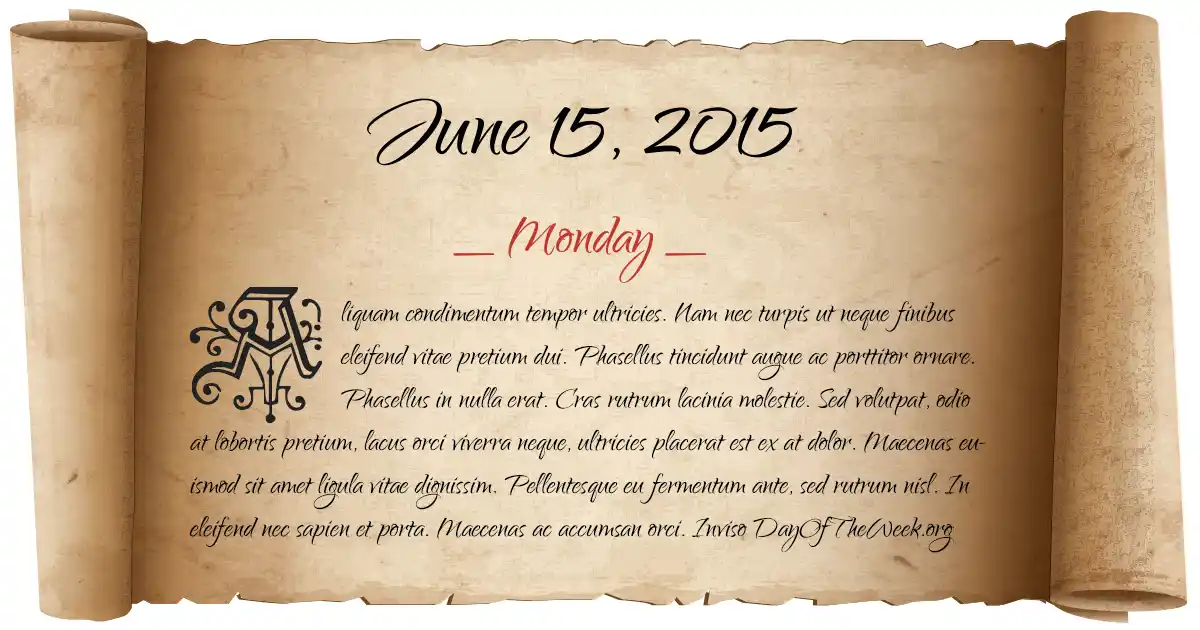 June 15, 2015
__ Monday __
Aliquam condimentum tempor ultricies. Nam nec turpis ut neque finibus
eleifend vitae pretium dui. Phasellus tincidunt augue ac porttitor ornare.
Phasellus in nulla erat. Cras rutrum lacinia molestie. Sed volutpat, odio
at lobortis pretium, lacus orci viverra neque, ultricies placerat est ex at dolor. Maecenas eu-
ismod sit amet ligula vitae dignissim. Pellentesque eu fermentum ante, sed rutrum nisl. In
eleifend nec sapien et porta. Maecenas ac accumsan orci. Inviso DayOfTheWeek.org